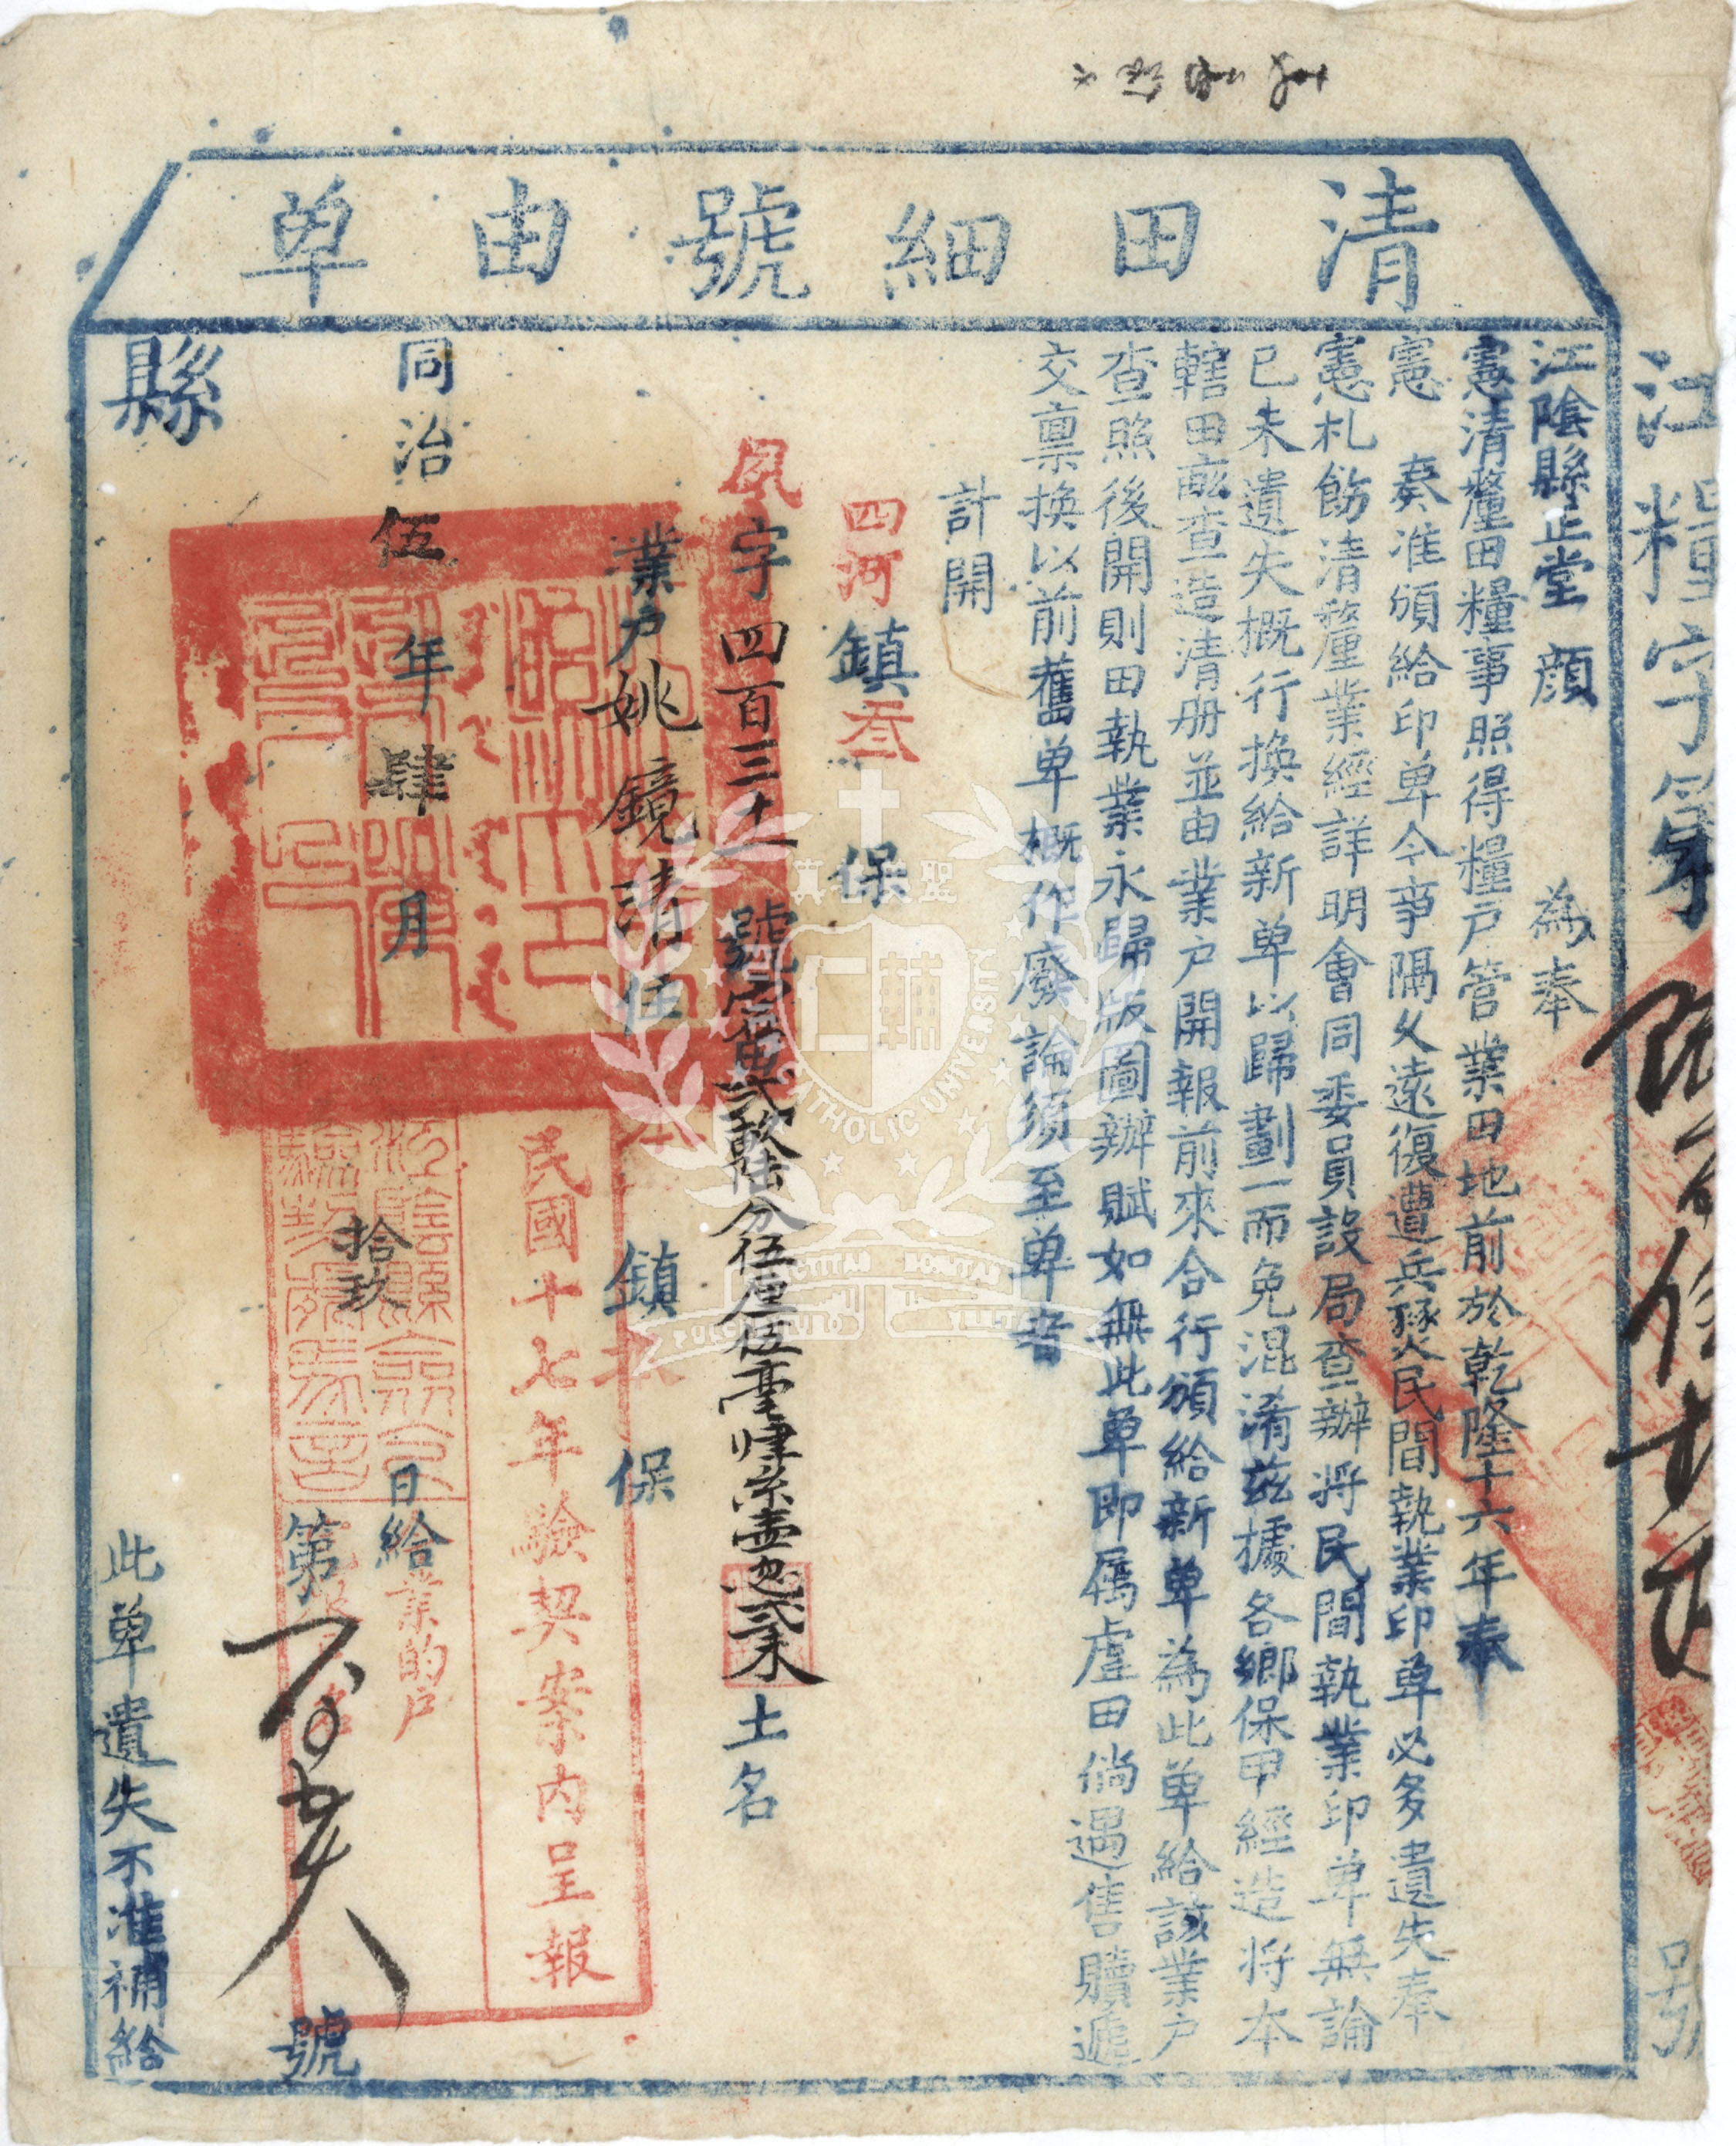 清田細號由單
江陰縣正堂顏　為奉
憲清釐田糧事照得糧戶管業田地前於乾隆十六年奉
憲　奏准頒給印單今事隔久遠復遭兵燹民間執業印單必多遺失奉
憲札飭清釐業經詳明會同委員設局查辦將民間執業印單無論
已未遺失概行換給新單以歸劃一而免混淆茲據各鄉保甲經造將本
轄田畝查造清册並由業户開報前來合行頒給新單為此單給該業户
查照後開則田執業永歸版圖辦賦如無此單即屬虛田倘遇售贖遞
交稟換以前舊單概作廢論須至單者
計開
四河鎮叁保
夙字四百三十 號 弍畝陸分伍厘伍毫肆糸壹忽弍末土名
業户姚鏡清住本鎮 保
民國十七年驗契案內呈報
同治伍年肆月拾玖日給
業的户
第 號
縣
此單遺失不准補給
江糧字第 號
聖 美
輔仁
CATHOLIC UNIVERSITY